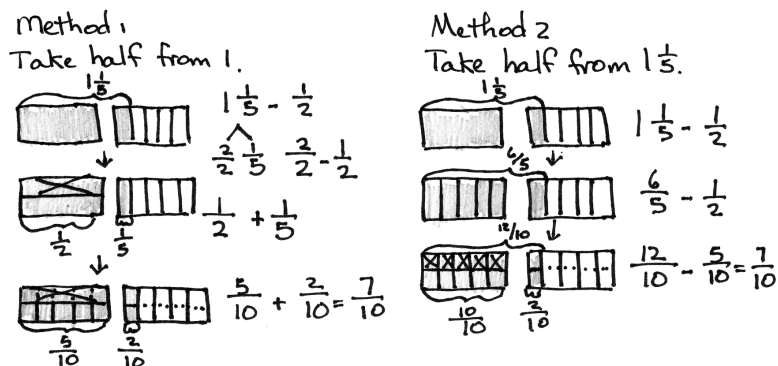 Method 1
Take half from 1.
1 1/5
1 1/5 - 1/2
2/2 1/5 2/2 - 1/2
1/2 + 1/5
1/2 1/5
5/10 + 2/10 = 7/10
5/10 2/10
Method 2
Take half from 1 1/5.
1 1/5
1 1/5 - 1/2
6/5
6/5 - 1/2
12/10
12/10 - 5/10 = 7/10
10/10 2/10